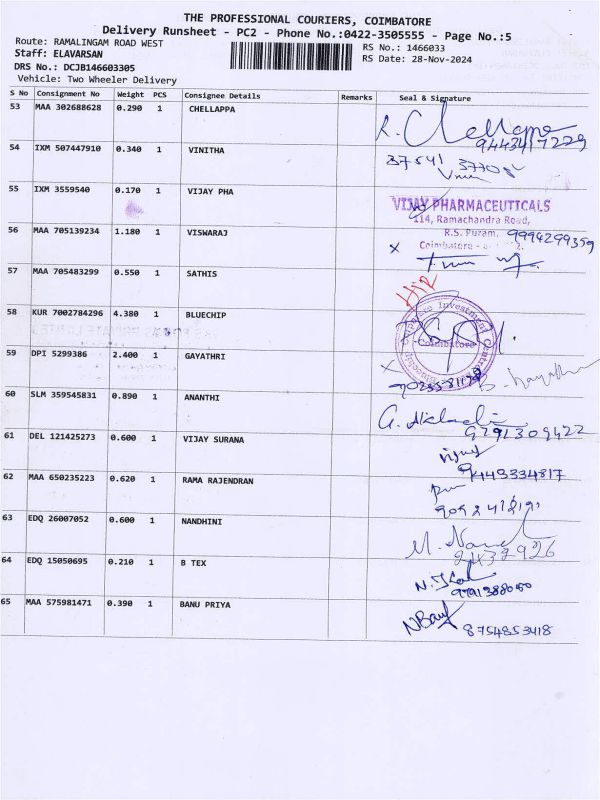 THE PROFESSIONAL COURIERS, COIMBATORE
Delivery Runsheet - PC2 - Phone No.:0422-3505555 - Page No.:5
Route: RAMALINGAM ROAD WEST RS No.: 1466033
Staff: ELAVARSAN RS Date: 28-Nov-2024
DRS No.: DCJB146603305
Vehicle: Two Wheeler Delivery
S No Consignment No Weight PCS Consignee Details Remarks Seal & Signature
53 MAA 302688628 0.290 1 CHELLAPPA
R. Chellappa
9443417229
54 IXM 507447910 0.340 1 VINITHA
55 IXM 3559540 0.170 1 VIJAY PHA
VIJAY PHARMACEUTICALS
114, Ramachandra Road,
R.S. Puram,
Coimbatore -
9994299359
56 MAA 705139234 1.180 1 VISWARAJ
57 MAA 705483299 0.550 1 SATHIS
58 KUR 7002784296 4.380 1 BLUECHIP
Bluechip Corporate Investment Centre
Coimbatore
59 DPI 5299386 2.400 1 GAYATHRI
60 SLM 359545831 0.890 1 ANANTHI
9791309422
61 DEL 121425273 0.600 1 VIJAY SURANA
9443334817
62 MAA 650235223 0.620 1 RAMA RAJENDRAN
63 EDQ 26007052 0.600 1 NANDHINI
2437926
64 EDQ 15050695 0.210 1 B TEX
9791388050
65 MAA 575981471 0.390 1 BANU PRIYA
8754853418